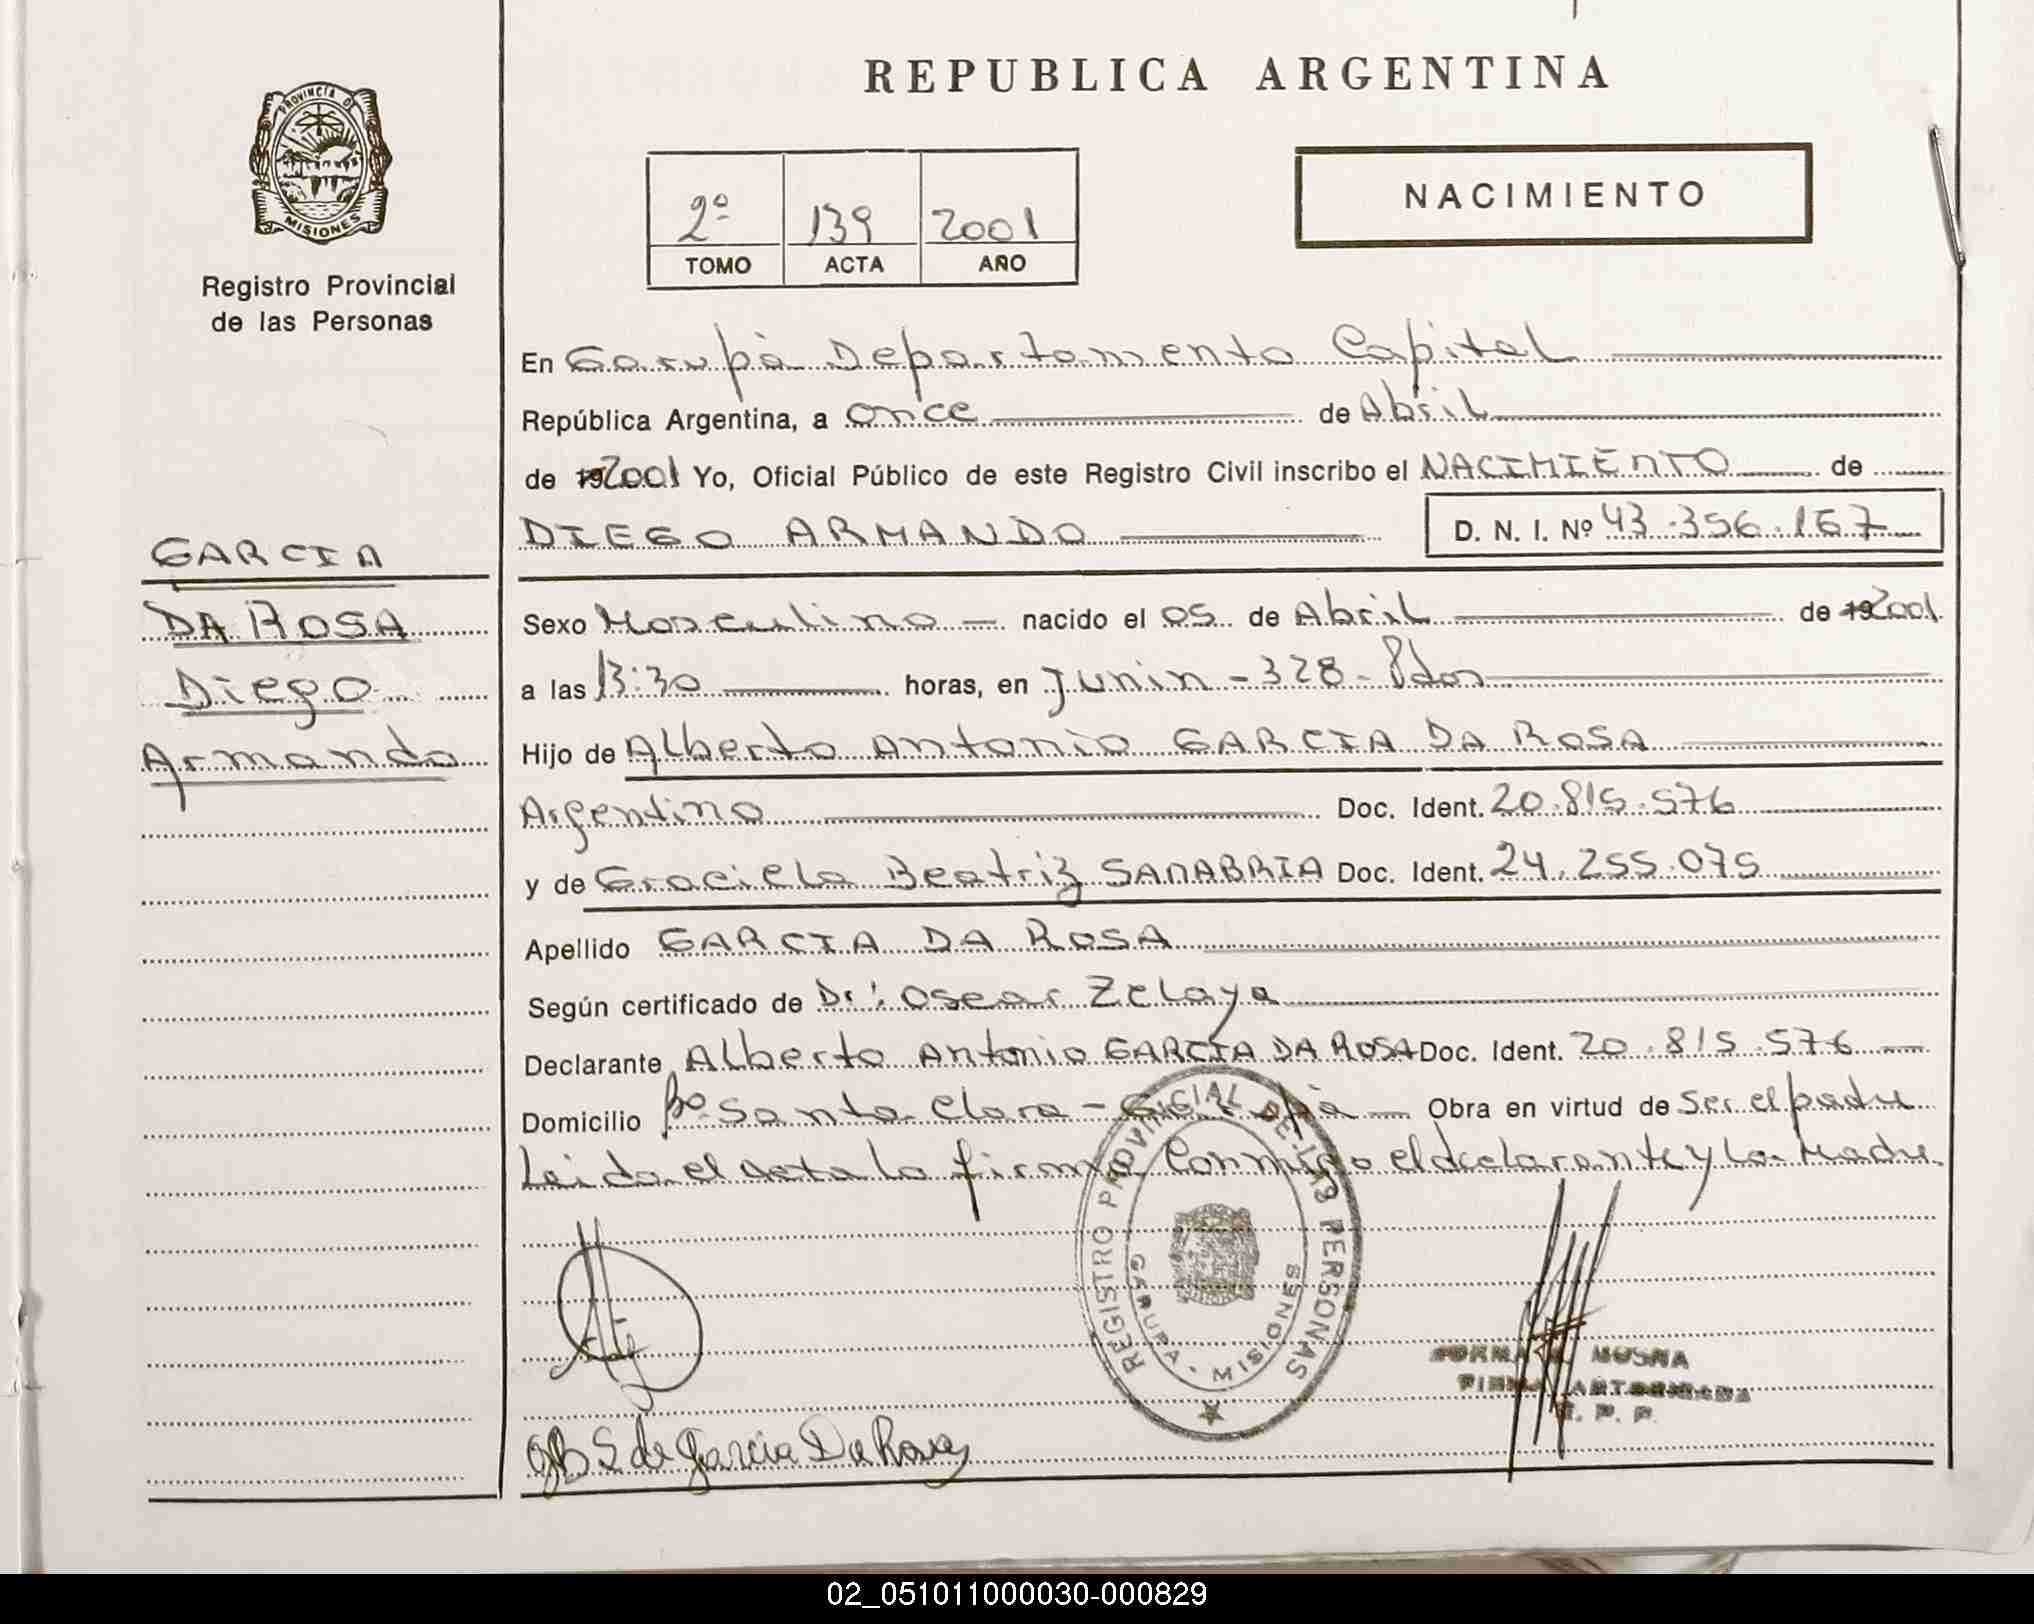 REPUBLICA ARGENTINA
PROVINCIA DE
MISIONES
Registro Provincial
de las Personas
2º 139 2001
TOMO ACTA AÑO
NACIMIENTO
En Garupà Departamento Capital
República Argentina, a once de Abril
de 192001 Yo, Oficial Público de este Registro Civil inscribo el NACIMIENTO de
DIEGO ARMANDO D. N. I. Nº 43.356.167
GARCIA
DA ROSA
Diego
Armando
Sexo Masculino nacido el 05 de Abril de 192001
a las 13:30 horas, en Junin - 328 - Pdas
Hijo de Alberto Antonio GARCIA DA ROSA
Argentino Doc. Ident. 20.815.576
y de Graciela Beatriz SANABRIA Doc. Ident. 24.255.075
Apellido GARCIA DA ROSA
Según certificado de Dr: Oscar Zelaya
Declarante Alberto Antonio GARCIA DA ROSA Doc. Ident. 20.815.576
Domicilio Bº Santa Clara - Garupà Obra en virtud de ser el padre
Leida el acta la firma conmigo el declarante y la Madre.
REGISTRO PROVINCIAL DE LAS PERSONAS
GARUPA - MISIONES
MOSNA
FIRMA AUTORIZADA
R. P. P.
GBS de Garcia Da Rosa
02_051011000030-000829